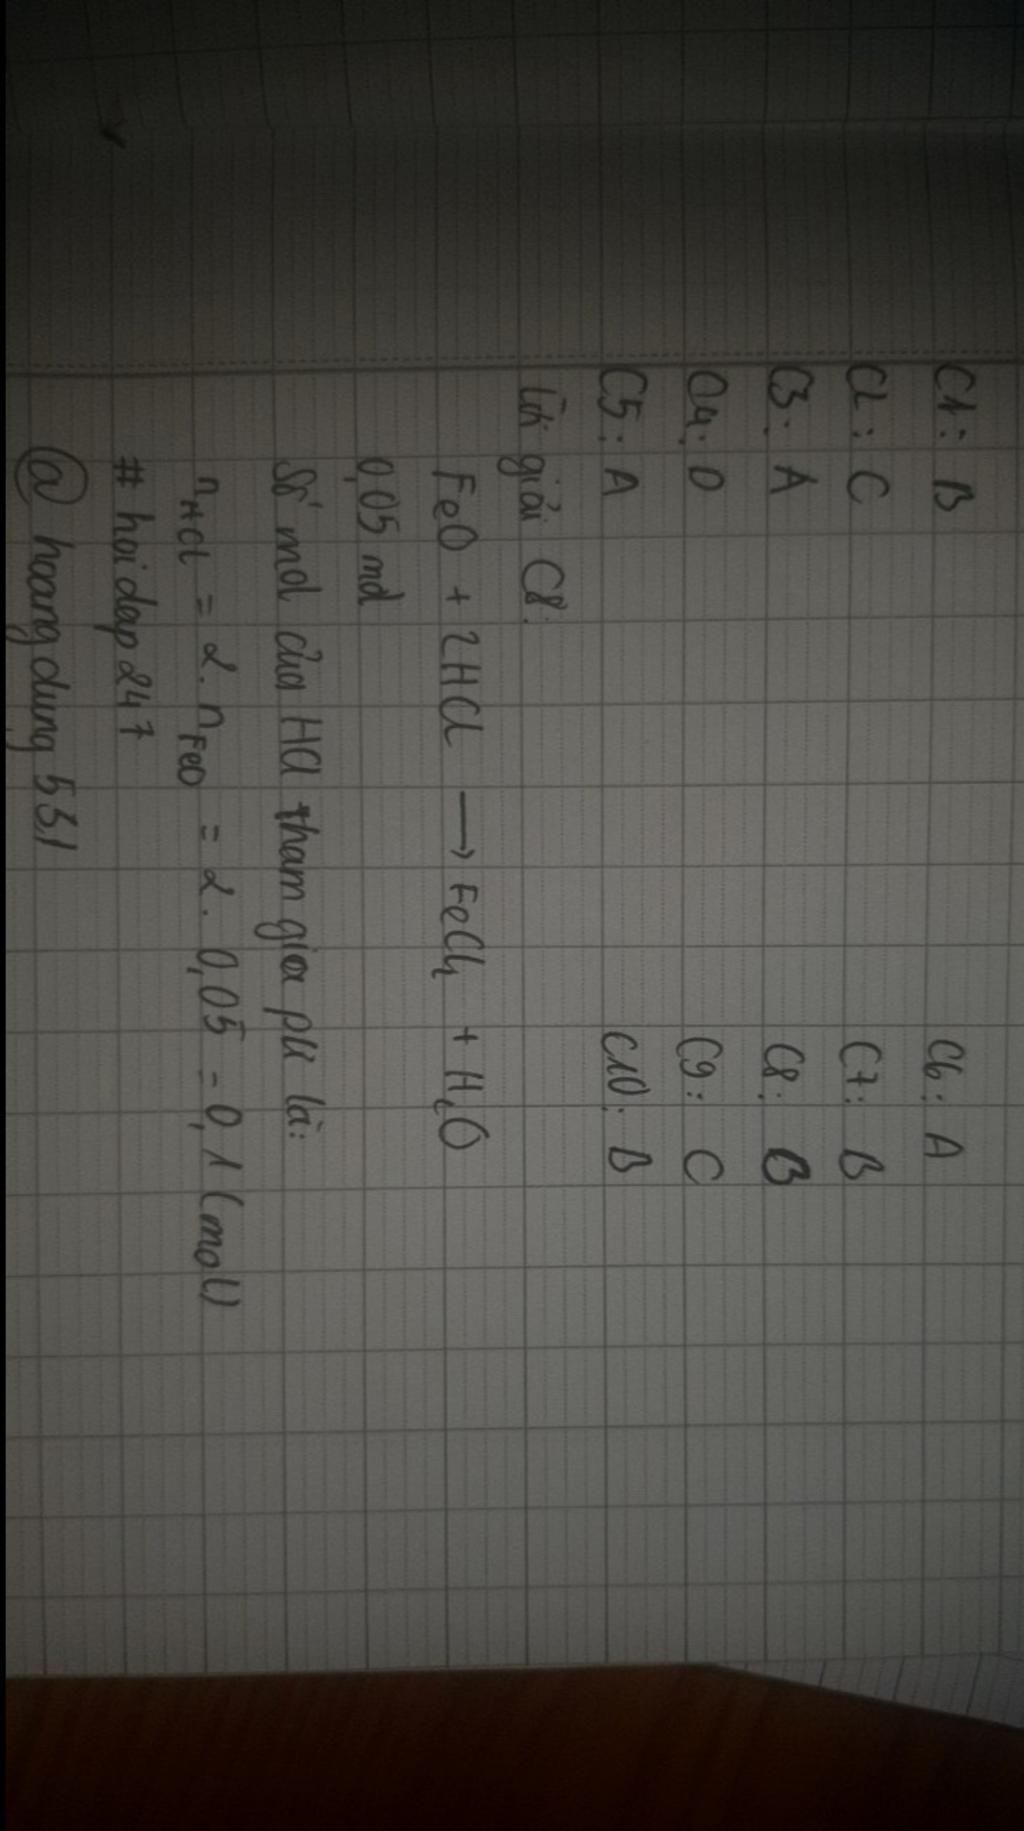 C1: B C6: A
C2: C C7: B
C3: A C8: B
C4: D C9: C
C5: A C10: B
Lời giải C8:
FeO + 2HCl → FeCl₂ + H₂O
0,05 mol
Số mol của HCl tham gia pứ là:
nHCl = 2.nFeO = 2.0,05 = 0,1 (mol)
# hoidap247
@ hoangdung531